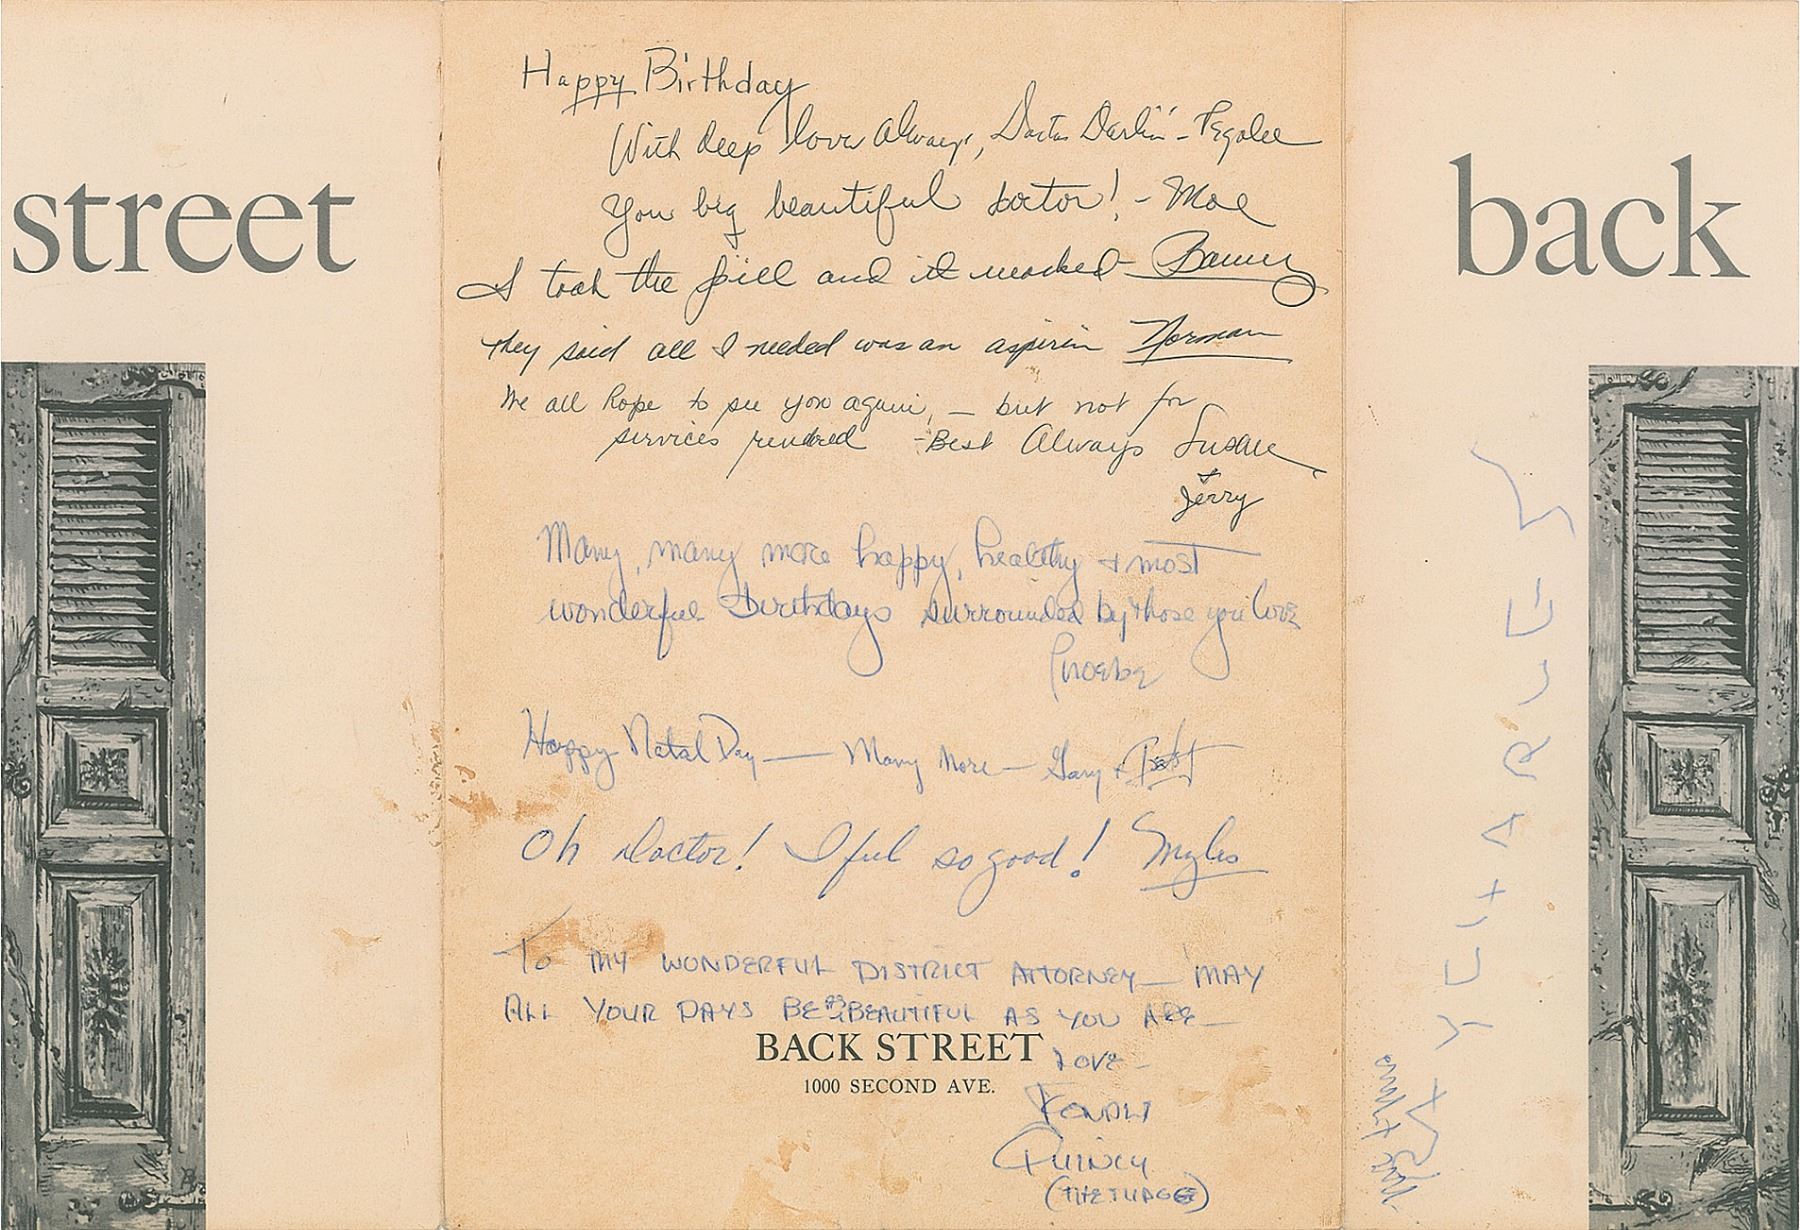 street
Happy Birthday
With deep love Always, Doctor Darlin' - Pegolee
You big beautiful doctor! - Moe
I took the pill and it worked
They said all I needed was an aspirin Norman
We all hope to see you again, - but not for
services rendred - Best Always Susane
+
Jerry
Many, many more happy, healthy + most
wonderful Birthdays surrounded by those you love
Phoebe
Happy Natal Day — Many More — Gary +
Oh Doctor! I feel so good! Myles
To MY WONDERFUL DISTRICT ATTORNEY — MAY
ALL YOUR DAYS BE AS BEAUTIFUL AS YOU ARE —
BACK STREET
LOVE -
1000 SECOND AVE.
FONDLY
QUINCY
(THE JUDGE)
back
RAY CHARLES